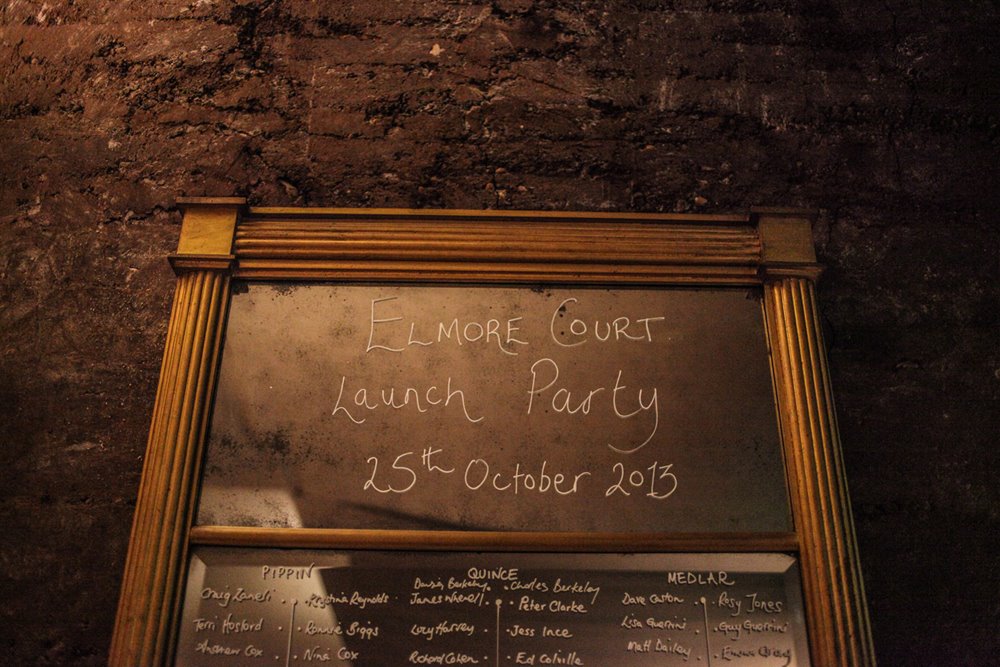 ELMORE COURT
Launch Party
25th October 2013
PIPPIN QUINCE MEDLAR
Craig Kristina Reynolds Berkeley Charles Berkeley Dave Rosy Jones
Terri Hosford Ronnie Biggs James Peter Clarke Lisa Guerrini Guy Guerrini
Andrew Cox Nina Cox Lucy Harvey Jess Ince Matt Dailey Emma
Richard Cohen Ed Colville